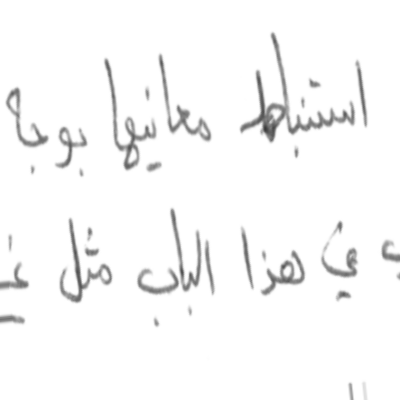 استنباط معانيها بوجه
في هذا الباب مثل